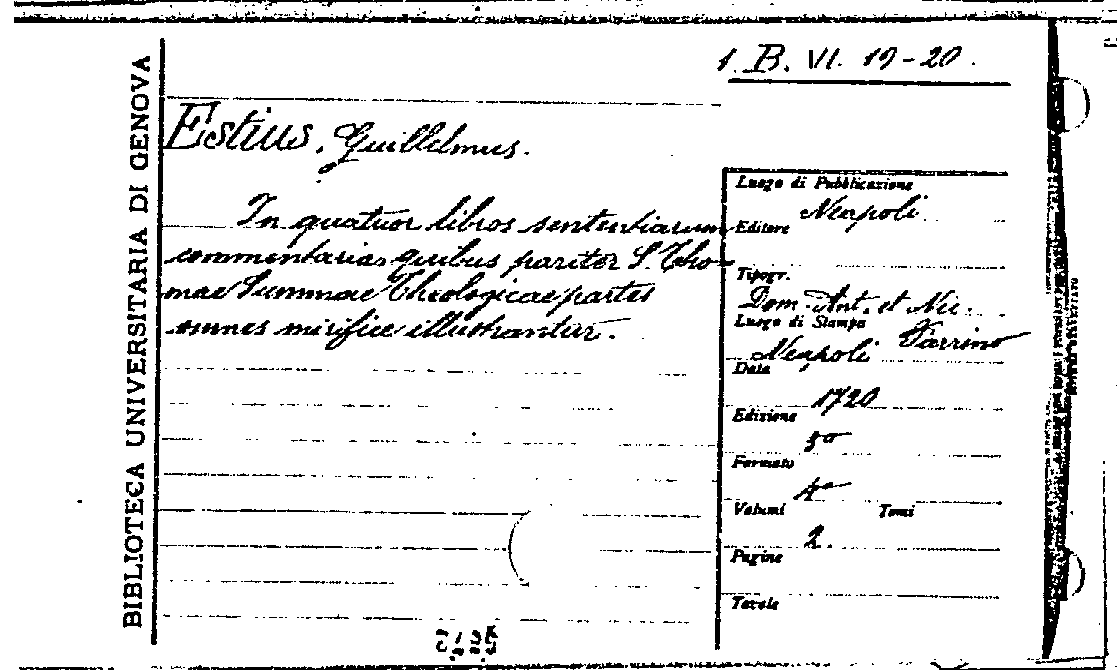 BIBLIOTECA UNIVERSITARIA DI GENOVA
1. B. VI. 19-20.
Estius, Guillelmus.
In quatuor libros sententiarum
commentaria quibus pariter S. Tho-
mae Summae Theologicae partes
omnes mirifice illustrantur.
Luogo di Pubblicazione
Neapoli
Editore
Tipogr.
Dom. Ant. et Nic.
Luogo di Stampa
Parrino
Neapoli
Data
1720
Edizione
5ª
Formato
4°
Volumi Tomi
2.
Pagine
Tavole